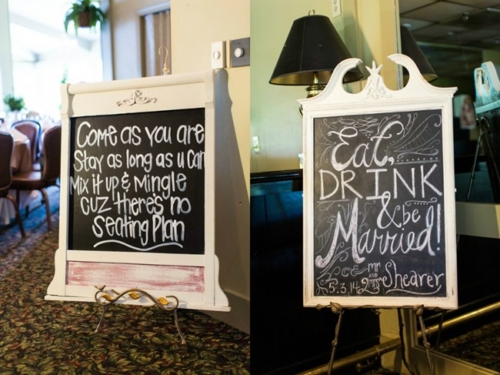 Come as you are
Stay as long as u can
Mix it up & Mingle
cuz there's no
Seating Plan
Eat,
DRINK
& be
Married!
mr and mrs Shearer
5.3.14